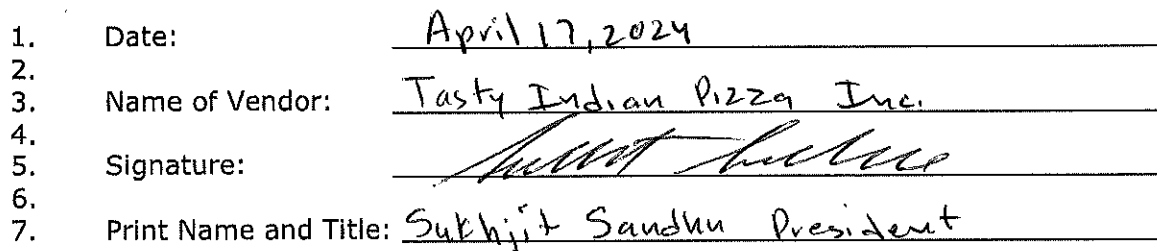 1. Date: April 17, 2024
2.
3. Name of Vendor: Tasty Indian Pizza Inc.
4.
5. Signature:
6.
7. Print Name and Title: Sukhjit Sandhu President